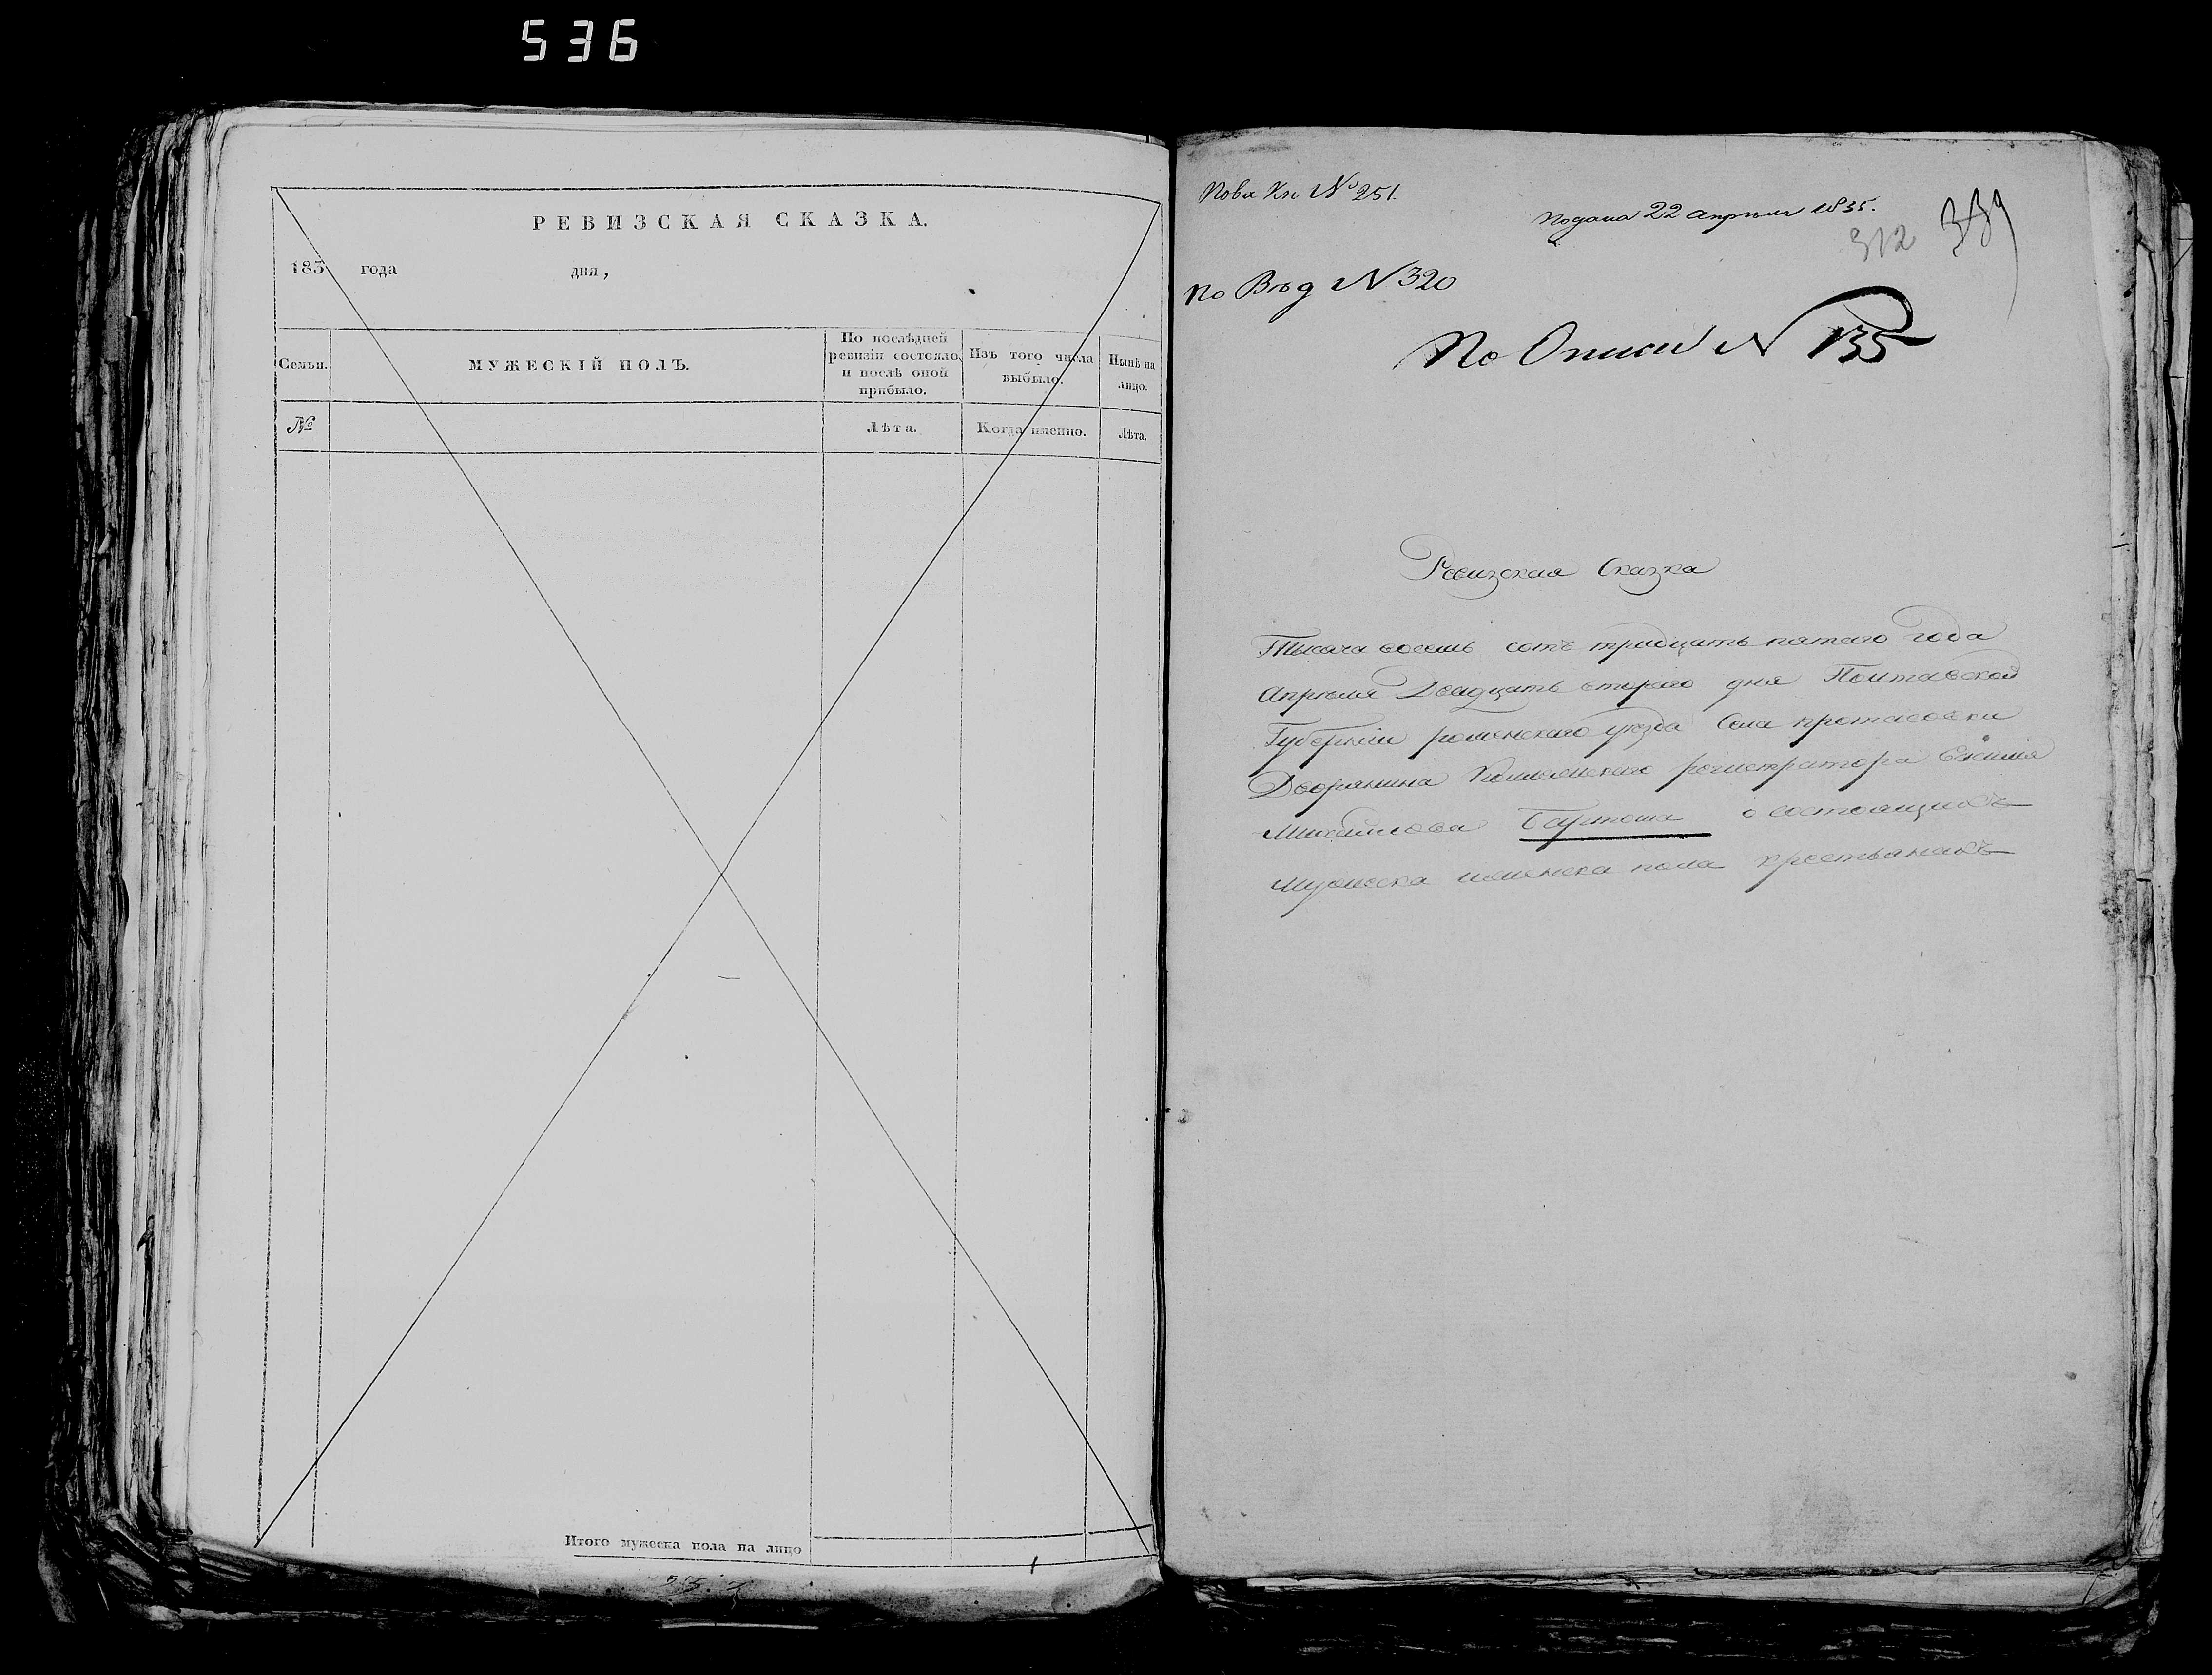 536
РЕВИЗСКАЯ СКАЗКА.
183 года дня,
Семьи.
МУЖЕСКІЙ ПОЛЪ.
По послѣдней
ревизіи состояло,
и послѣ оной
прибыло.
Изъ того числа
выбыло.
Нынѣ на
лицо.
№
Лѣта.
Когда именно.
Лѣта.
Итого мужеска пола на лицо
Кн № 251.
Подана 22 апрѣля 1835.
312 339
по Вѣд N 320
По Описи N 135
Ревизская Сказка
Тысяча восемь сотъ тридцать пятаго года
Апрѣля Двадцать втораго дня Полтавской
Губерніи роменскаго уезда Села протасовки
Дворянина Колежскаго регистратора
Михайлова Бартоша о состоящихъ
мужеска и женска пола крестьянахъ